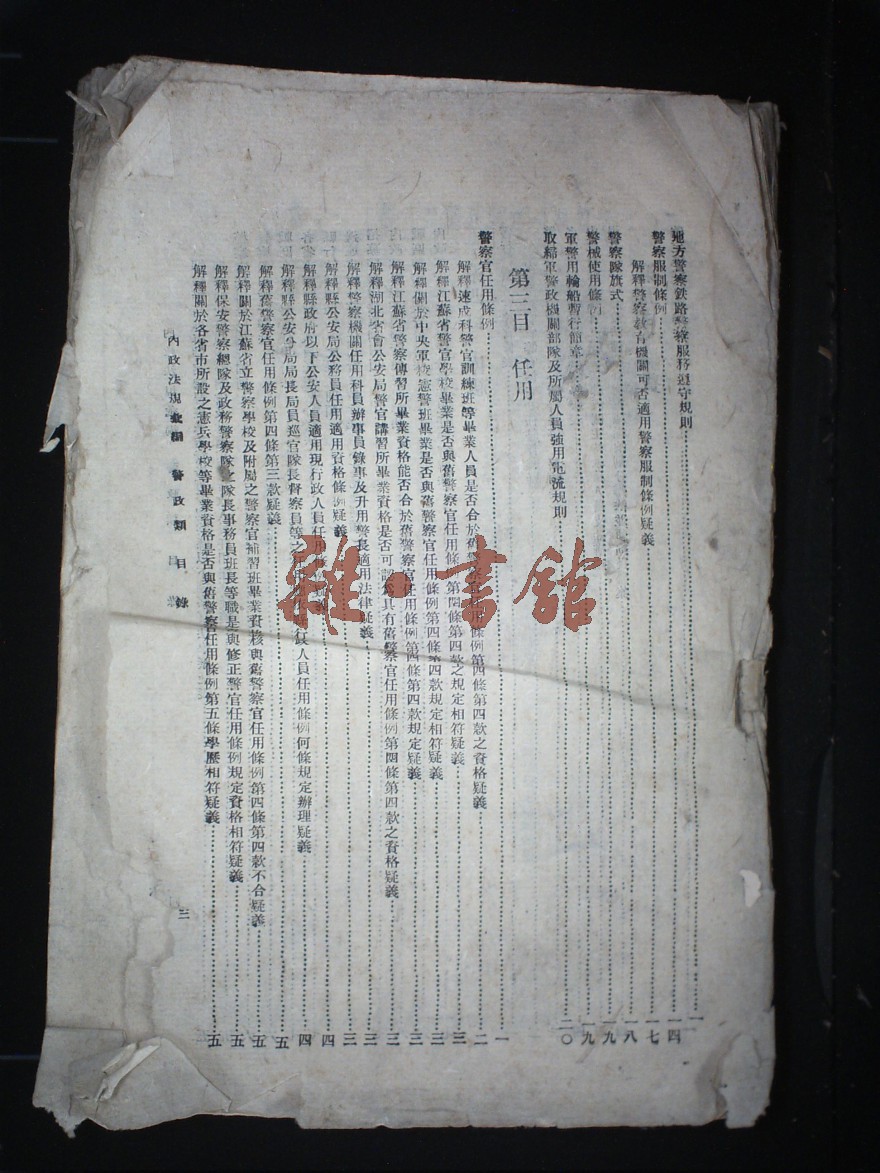 地方警察鉄路警察服務遵守規則 一四
警察服制條例 一七
解釋警察教育機關可否適用警察服制條例疑義 一八
警察隊旗式 一九
警械使用條例 一九
軍警用輪船暫行簡章 一九
取締軍警政機關部隊及所屬人員強用電流規則 二〇
第三目 任用
警察官任用條例 一
解釋速成科警官訓練班等畢業人員是否合於舊警察官任用條例第四條第四款之資格疑義 二
解釋江蘇省警官學校畢業是否與舊警察官任用條例第四條第四款之規定相符疑義 三
解釋關於中央軍校憲警班畢業是否與舊警察官任用條例第四條第四款規定相符疑義 三
解釋江蘇省警察傳習所畢業資格能否合於舊警察官任用條例第四條第四款規定疑義 三
解釋湖北省會公安局警官講習所畢業資格是否可認為具有舊警察官任用條例第四條第四款之資格疑義 三
解釋警察機關任用科員辦事員錄事及升用警長適用法律疑義 三
解釋縣公安局公務員任用適用資格條例疑義 三
解釋縣政府以下公安人員適用現行政人員任用 四
解釋縣公安分局局長局員巡官隊長督察員等之任用 人員任用條例何條規定辦理疑義 四
解釋舊警察官任用條例第四條第三款疑義 五
解釋關於江蘇省立警察學校及附屬之警察官補習班畢業資格與舊警察官任用條例第四條第四款不合疑義 五
解釋保安警察總隊及政務警察隊之隊長事務員班長等職是與修正警官任用條例規定資格相符疑義 五
解釋關於各省市所設之憲兵學校等畢業資格是否與舊警察任用條例第五條學歷相符疑義 五
內政法規彙編 警政類 目錄
三
雜·書館